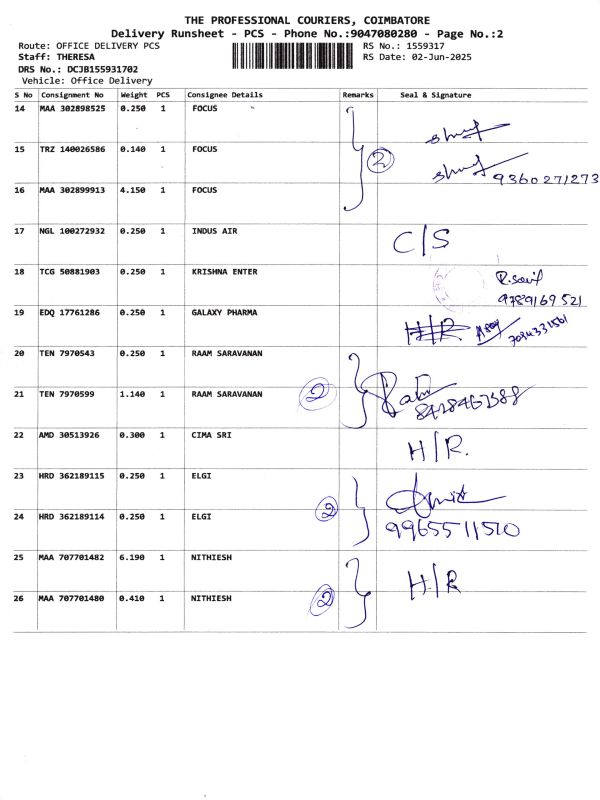 THE PROFESSIONAL COURIERS, COIMBATORE
Delivery Runsheet - PCS - Phone No.:9047080280 - Page No.:2
Route: OFFICE DELIVERY PCS RS No.: 1559317
Staff: THERESA RS Date: 02-Jun-2025
DRS No.: DCJB155931702
Vehicle: Office Delivery
S No Consignment No Weight PCS Consignee Details Remarks Seal & Signature
14 MAA 302898525 0.250 1 FOCUS
15 TRZ 140026586 0.140 1 FOCUS 2
9360271273
16 MAA 302899913 4.150 1 FOCUS
17 NGL 100272932 0.250 1 INDUS AIR C/S
18 TCG 50881903 0.250 1 KRISHNA ENTER
9789169521
19 EDQ 17761286 0.250 1 GALAXY PHARMA H/R
20 TEN 7970543 0.250 1 RAAM SARAVANAN
21 TEN 7970599 1.140 1 RAAM SARAVANAN 2
22 AMD 30513926 0.300 1 CIMA SRI H/R.
23 HRD 362189115 0.250 1 ELGI
24 HRD 362189114 0.250 1 ELGI 2 9965511510
25 MAA 707701482 6.190 1 NITHIESH H/R
26 MAA 707701480 0.410 1 NITHIESH 2